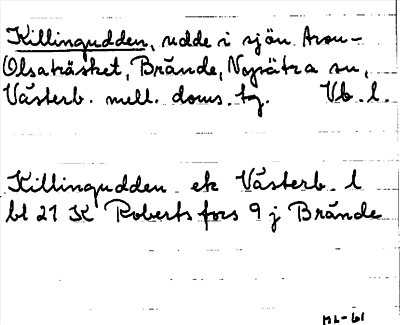 Killingudden, udde i sjön Avan-
Olsaträsket, Brände, Nysätra sn,
Västerb. mell. doms. tg. Vb. l.
Killingudden ek Västerb. l
bl 27 K Robertsfors 9 j Brände
ML-61